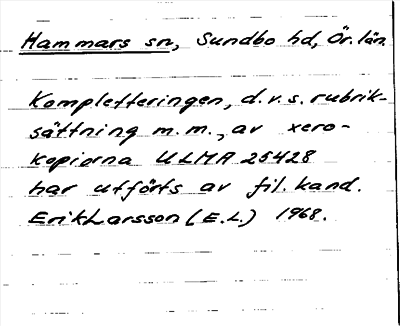 Hammars sn, Sundbo hd, Ör. län.
Kompletteringen, d.v.s. rubrik-
sättning m.m., av xero-
kopiorna ULMA 25428
har utförts av fil. kand.
Erik Larsson (E.L.) 1968.